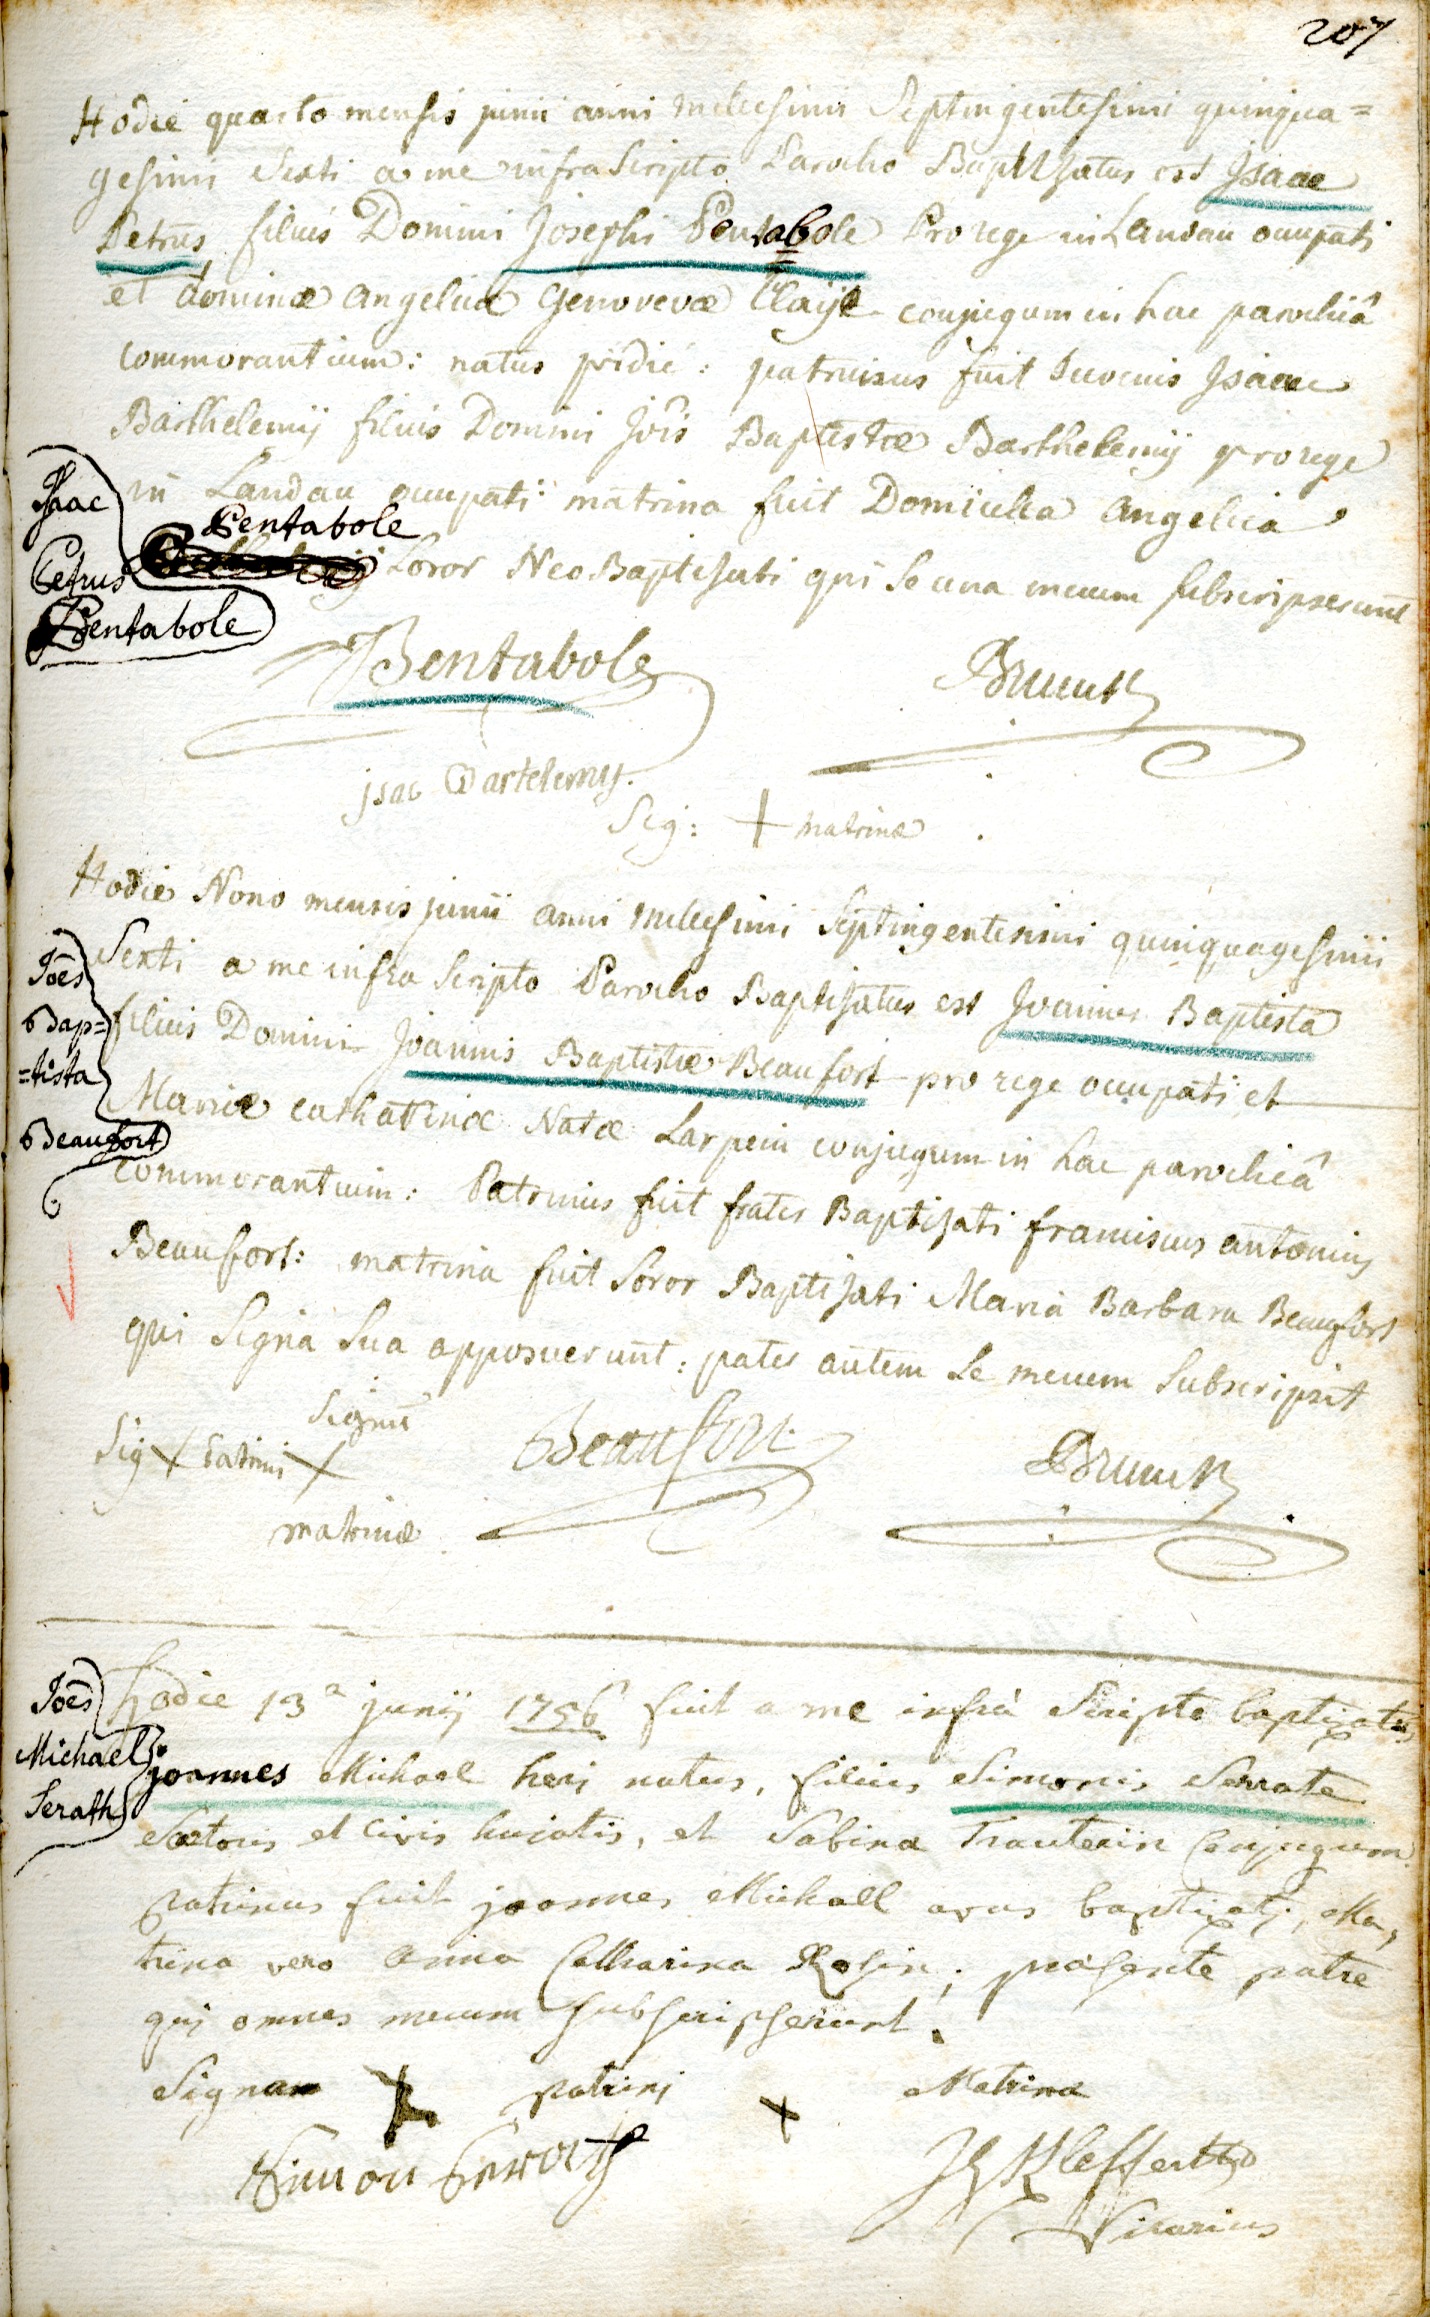 207
Hodie quarto mensis junii anni millesimi Septingentesimi quinqua=
gesimi Sexti a me infra Scripto Parocho Baptisatus est Isaac
Petrus filius Domini Josephi Pentabole Pro rege in Landau occupati
et dominæ Angelicæ Genovevæ Claije conjugum in hac parochiâ
commorantium: natus pridie: patrinus fuit Juvenis Isaac
Barthelemij filius Domini Jois Baptistæ Barthelemij pro rege
Isaac
in Landau occupati: matrina fuit Domicella Angelica
Pentabole
Petrus
Soror Neo Baptisati qui se una mecum subscripserunt
Pentabole
Bentabole
Brunck
isac Bartelemy.
Sig: + matrinæ
Hodie Nono mensis junii anni millesimi Septingentesimi quinquagesimi
Joēs
Sexti a me infra Scripto Parocho Baptisatus est Joannes Baptista
Bap=
filius Domini Joannis Baptistæ Beaufort pro rege occupati et
=tista
Mariæ catharinæ Natæ Larpein conjugum in hac parochiâ
Beaufort
commorantium: Patrinus fuit frater Baptisati franciscus antonius
Beaufort: matrina fuit Soror Baptisati Maria Barbara Beaufort
qui Signa Sua apposuerunt: pater autem Se mecum Subscripsit
Signū
Sig X Patrini X
Beaufort
Brunck
matrinæ
Joēs
hodie 13ª junij 1756 fuit a me infrà Scripto baptizatus
Michael
joannes Michael heri natus, filius Simonis Serrate
Serath
Sartoris et Civis hujatis, et Sabina Trauterin Conjugum
patrinus fuit joannes Michael avus baptizatj, Ma,
trina vero Anna Catharina Rosin; præsente patre
qui omnes mecum subscripserunt.
Signum X patrini X Matrinæ
Simon Serath
Kleffert
Vicarius